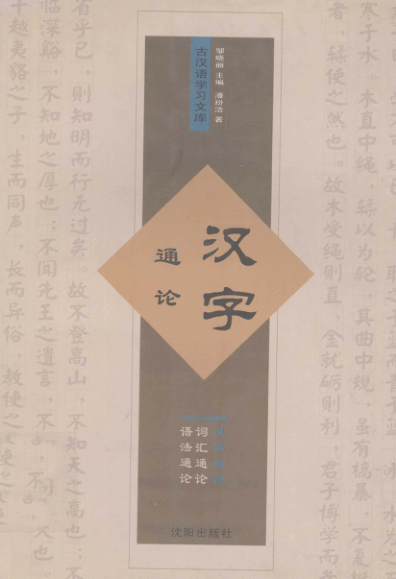 邹晓丽 主编
著
古汉语学习文库
汉字
通论
词汇通论
语法通论
沈阳出版社
寒于水 木直中绳，輮以为轮，其曲中规，虽有槁暴，不复
者，輮使之然也。故木受绳则直，金就砺则利，君子博学而
省乎己，则知明而行无过矣。故不登高山，不知天之高也；不
临深谿，不知地之厚也；不闻先王之遗言，不
干越夷貉之子，生而同声，长而异俗，教使之